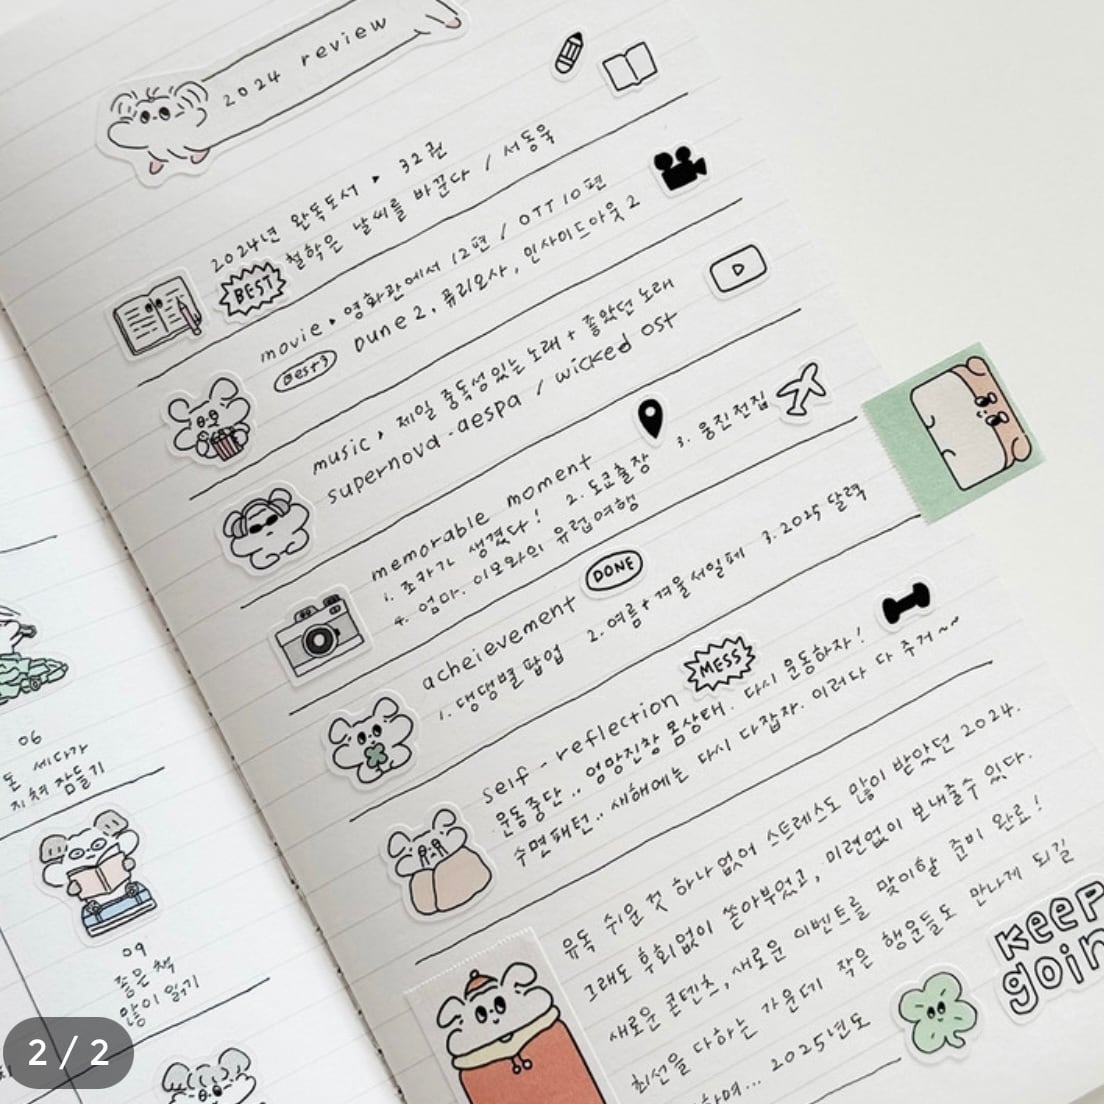 2024 review
2024년 완독도서 ▸ 32권
BEST 철학은 날씨를 바꾼다 / 서동욱
movie ▸ 영화관에서 12편 / OTT 10편
Best3 Dune 2, 퓨리오사, 인사이드아웃 2
music ▸ 제일 중독성있는 노래 + 좋았던 노래
supernova - aespa / wicked ost
memorable moment
1. 조카가 생겼다! 2. 도쿄출장 3. 웅진전집
4. 엄마. 이모와의 유럽여행
acheievement DONE
1. 댕댕별 팝업 2. 여름+겨울 서일페 3. 2025 달력
self - reflection MESS
운동중단.. 엉망진창 몸상태. 다시 운동하자!
수면패턴.. 새해에는 다시 다잡자. 이러다 다 주거~~
유독 쉬운 것 하나 없어 스트레스도 많이 받았던 2024.
그래도 후회없이 쏟아부었고, 미련없이 보내줄수 있다.
새로운 콘텐츠, 새로운 이벤트를 맞이할 준비 완료!
최선을 다하는 가운데 작은 행운들도 만나게 되길
하며... 2025년도
KEEP
goin
06
도 세다가
지쳐 잠들기
09
좋은 책
많이 읽기
2 / 2